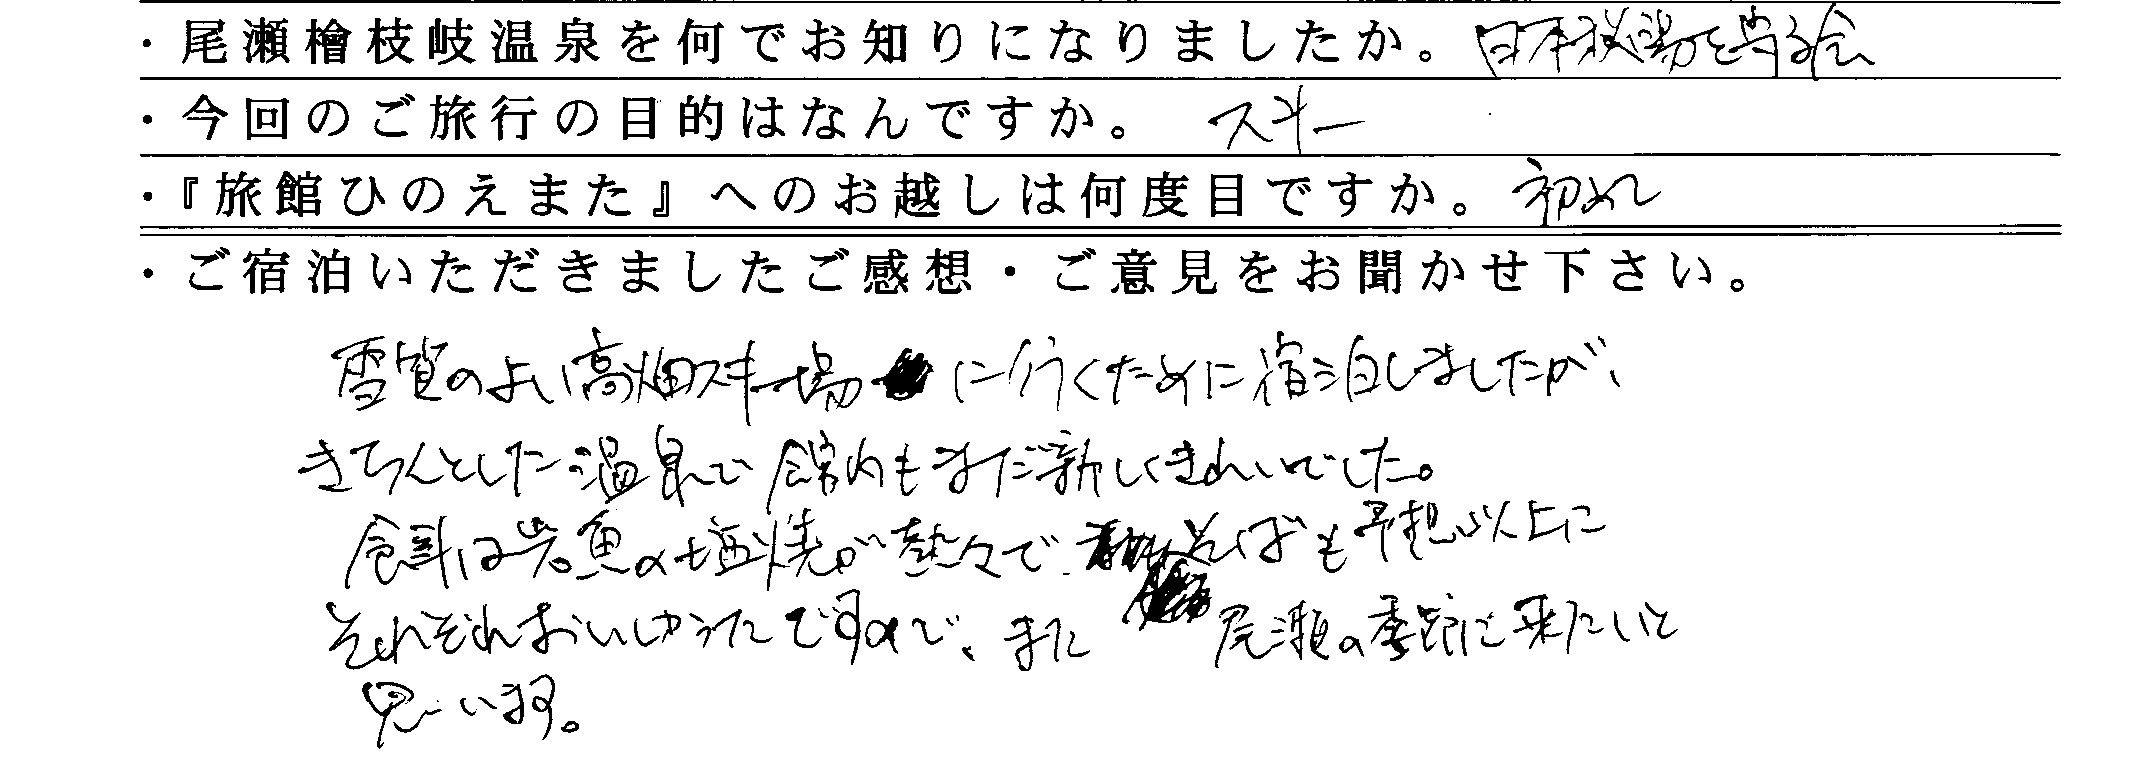 ・尾瀬檜枝岐温泉を何でお知りになりましたか。日本秘湯を守る会
・今回のご旅行の目的はなんですか。 スキー
・『旅館ひのえまた』へのお越しは何度目ですか。初めて
・ご宿泊いただきましたご感想・ご意見をお聞かせ下さい。
雪質のよい高畑スキー場に行くために宿泊しましたが、
きちんとした温泉で館内もまだ新しくきれいでした。
食事は岩魚の塩焼が熱々で、そばも予想以上に
それぞれおいしかったですので、また尾瀬の季節に来たいと
思います。